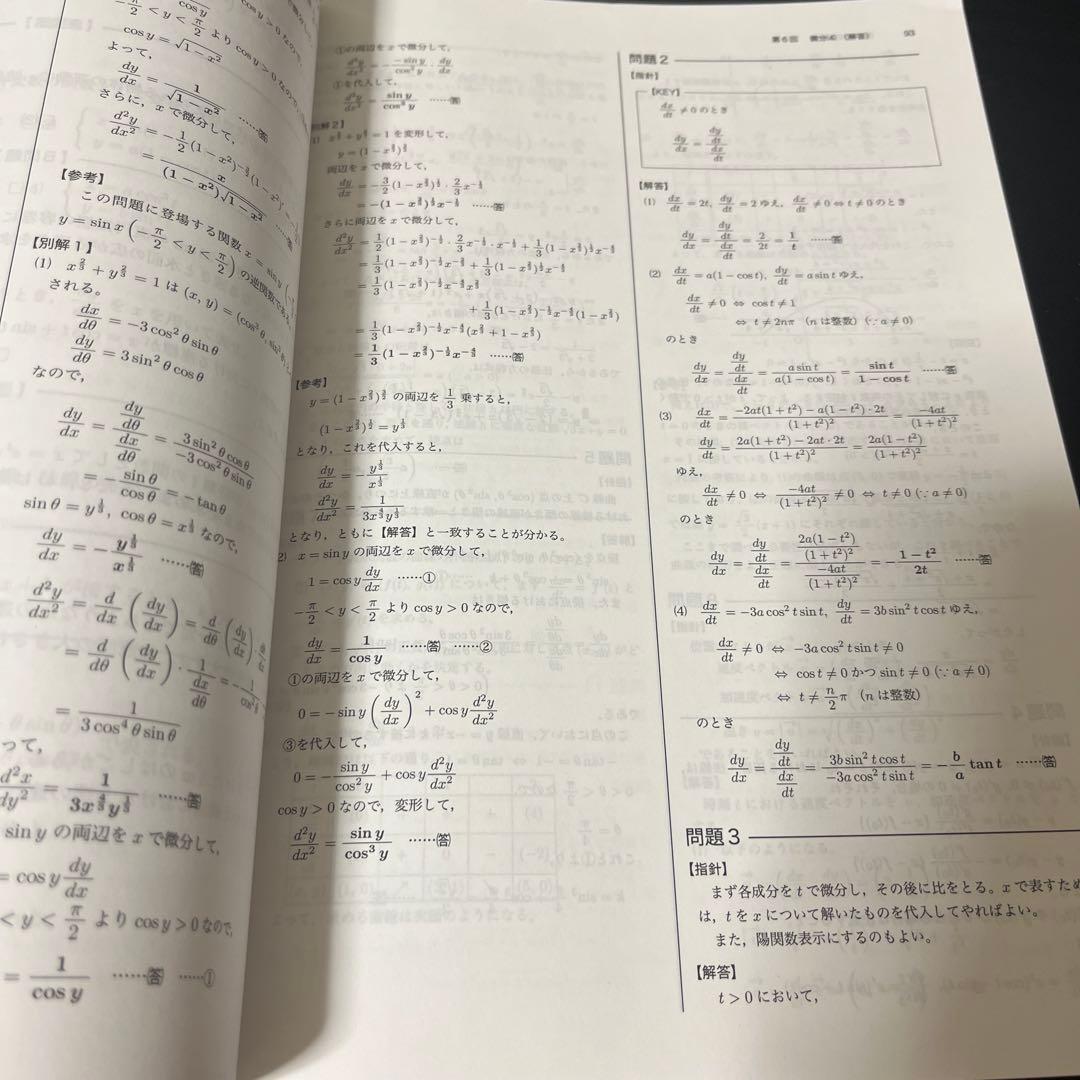 −π/2 < y < π/2 より cos y > 0 なので,
cos y = √(1−x²)
よって,
dy/dx = 1/√(1−x²) ……答
さらに, x で微分して,
d²y/dx² = −1/2 (1−x²)^(−3/2)
= x/((1−x²)√(1−x²))
【参考】
この問題に登場する関数 x = sin y
y = sin x (−π/2 < y < π/2) の逆関数である
【別解1】
(1) x^(2/3) + y^(2/3) = 1 は (x, y) = (cos³θ, sin³θ)
される。
dx/dθ = −3cos²θ sinθ
dy/dθ = 3sin²θ cosθ
なので,
dy/dx = (dy/dθ)/(dx/dθ) = (3sin²θ cosθ)/(−3cos²θ sinθ)
= −sinθ/cosθ = −tanθ
sinθ = y^(1/3), cosθ = x^(1/3) なので,
dy/dx = −y^(1/3)/x^(1/3) ……答
d²y/dx² = d/dx (dy/dx) = d/dθ (dy/dx)
= d/dθ (dy/dx) · 1/(dx/dθ) = −1/cos²θ
= 1/(3cos⁴θ sinθ)
って,
d²x/dy² = 1/(3x^(4/3) y^(1/3)) ……答
sin y の両辺を x で微分して,
= cos y dy/dx
< y < π/2 より cos y > 0 なので,
= 1/cos y ……答 ……①
①の両辺を x で微分して,
d²y/dx² = −(−sin y)/cos²y · dy/dx
①を代入して,
d²y/dx² = sin y/cos³y ……答
別解2】
1) x^(2/3) + y^(2/3) = 1 を変形して,
y = (1−x^(2/3))^(3/2)
両辺を x で微分して,
dy/dx = −3/2 (1−x^(2/3))^(1/2) · 2/3 x^(−1/3)
= −(1−x^(2/3))^(1/2) x^(−1/3) ……答
さらに両辺を x で微分して,
d²y/dx² = 1/2 (1−x^(2/3))^(−1/2) · 2/3 x^(−1/3) · x^(−1/3) + 1/3 (1−x^(2/3))^(1/2) x^(−4/3)
= 1/3 (1−x^(2/3))^(−1/2) x^(−2/3) + 1/3 (1−x^(2/3))^(1/2) x^(−4/3)
= 1/3 (1−x^(2/3))^(−1/2) x^(−4/3) x^(2/3)
+ 1/3 (1−x^(2/3))^(−1/2) x^(−4/3) (1−x^(2/3))
= 1/3 (1−x^(2/3))^(−1/2) x^(−4/3) (x^(2/3) + 1 − x^(2/3))
= 1/3 (1−x^(2/3))^(−1/2) x^(−4/3) ……答
【参考】
y = (1−x^(2/3))^(3/2) の両辺を 1/3 乗すると,
(1−x^(2/3))^(1/2) = y^(1/3)
となり, これを代入すると,
dy/dx = −y^(1/3)/x^(1/3)
d²y/dx² = 1/(3x^(4/3) y^(1/3))
となり, ともに【解答】と一致することが分かる。
2) x = sin y の両辺を x で微分して,
1 = cos y dy/dx ……①
−π/2 < y < π/2 より cos y > 0 なので,
dy/dx = 1/cos y ……答 ……②
①の両辺を x で微分して,
0 = −sin y (dy/dx)² + cos y d²y/dx²
③を代入して,
0 = −sin y/cos²y + cos y d²y/dx²
cos y > 0 なので, 変形して,
d²y/dx² = sin y/cos³y ……答
第6回 微分④(解答) 93
問題2
【指針】
【KEY】
dx/dt ≠ 0 のとき
dy/dx = (dy/dt)/(dx/dt)
【解答】
(1) dx/dt = 2t, dy/dt = 2 ゆえ, dx/dt ≠ 0 ⇔ t ≠ 0 のとき
dy/dx = (dy/dt)/(dx/dt) = 2/2t = 1/t ……答
(2) dx/dt = a(1−cos t), dy/dt = a sin t ゆえ,
dx/dt ≠ 0 ⇔ cos t ≠ 1
⇔ t ≠ 2nπ (n は整数) (∵ a ≠ 0)
のとき
dy/dx = (dy/dt)/(dx/dt) = a sin t/(a(1−cos t)) = sin t/(1−cos t) ……答
(3) dx/dt = (−2at(1+t²) − a(1−t²)·2t)/(1+t²)² = −4at/(1+t²)²
dy/dt = (2a(1+t²) − 2at·2t)/(1+t²)² = 2a(1−t²)/(1+t²)²
ゆえ,
dx/dt ≠ 0 ⇔ −4at/(1+t²)² ≠ 0 ⇔ t ≠ 0 (∵ a ≠ 0)
のとき
dy/dx = (dy/dt)/(dx/dt) = (2a(1−t²)/(1+t²)²)/(−4at/(1+t²)²) = −(1−t²)/2t ……答
(4) dx/dt = −3a cos²t sin t, dy/dt = 3b sin²t cos t ゆえ,
dx/dt ≠ 0 ⇔ −3a cos²t sin t ≠ 0
⇔ cos t ≠ 0 かつ sin t ≠ 0 (∵ a ≠ 0)
⇔ t ≠ n/2 π (n は整数)
のとき
dy/dx = (dy/dt)/(dx/dt) = (3b sin²t cos t)/(−3a cos²t sin t) = −b/a tan t ……答
問題3
【指針】
まず各成分を t で微分し, その後に比をとる。x で表すため
は, t を x について解いたものを代入してやればよい。
また, 陽関数表示にするのもよい。
【解答】
t > 0 において,